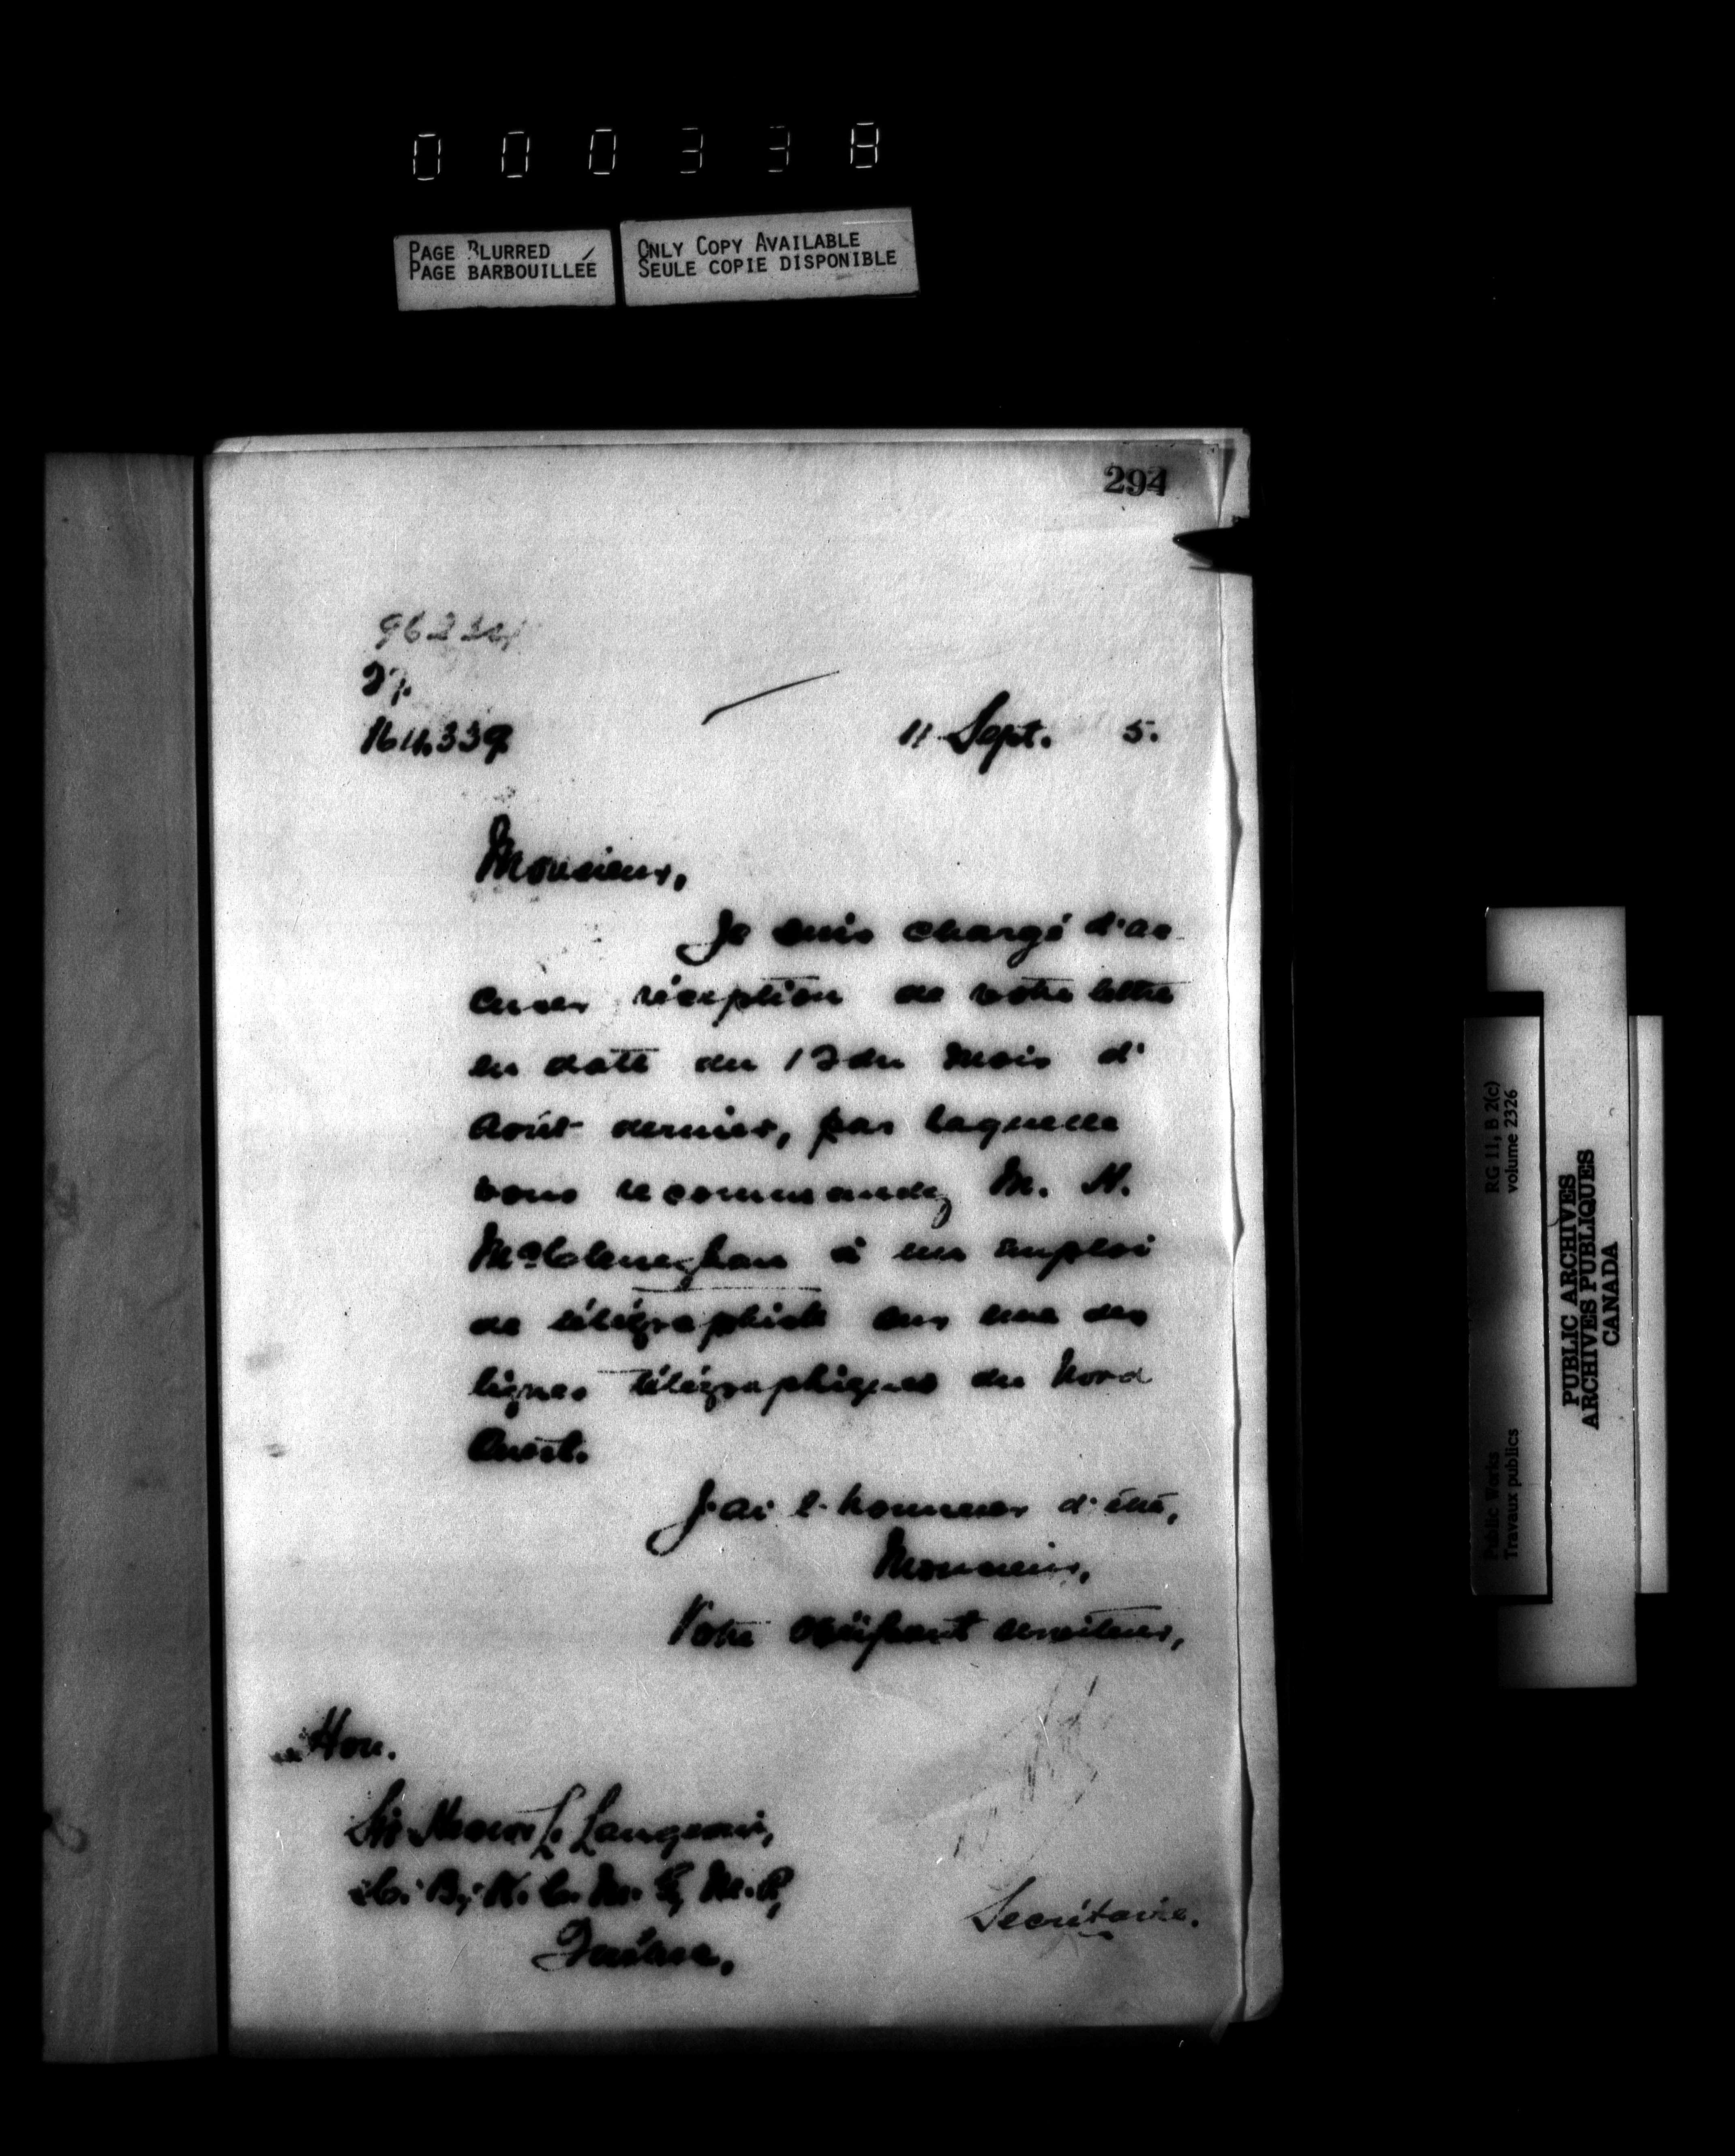 000338
PAGE BLURRED
PAGE BARBOUILLÉE
ONLY COPY AVAILABLE
SEULE COPIE DISPONIBLE
294
27.
164.339
11 Sept. 5.
Monsieur,
Je suis chargé d'ac-
cuser réception de votre lettre
en date du 13 du mois d'
Août dernier, par laquelle
vous recommandez M. H.
à un emploi
de télégraphiste sur une des
lignes télégraphiques du Nord
Ouest.
J'ai l'honneur d'être,
Monsieur,
Votre obéissant serviteur,
Hon.
Sir Hector L. Langevin,
C. B., K. C. M. G., M. P.,
Québec.
Secrétaire.
RG 11, B 2(c)
volume 2326
Public Works
Travaux publics
PUBLIC ARCHIVES
ARCHIVES PUBLIQUES
CANADA